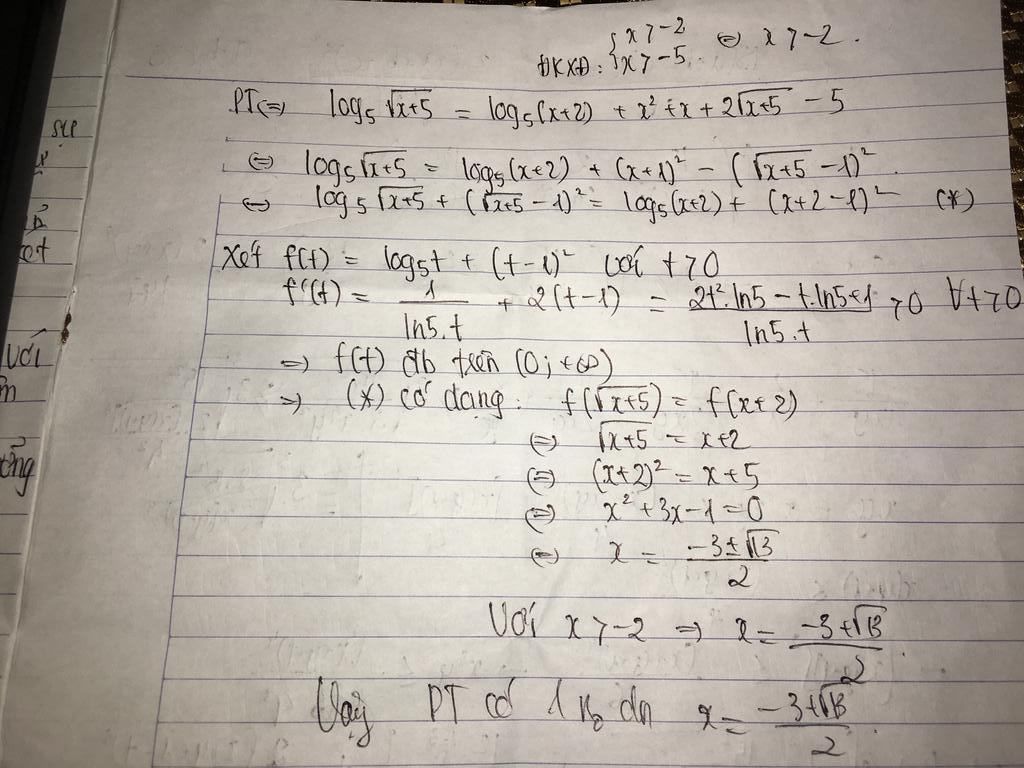 x > -2
ĐKXĐ: { x > -5 ⇔ x > -2.
PT⇔ log₅√(x+5) = log₅(x+2) + x² + x + 2√(x+5) - 5
⇔ log₅√(x+5) = log₅(x+2) + (x+1)² - (√(x+5) - 1)².
⇔ log₅√(x+5) + (√(x+5) - 1)² = log₅(x+2) + (x+2-1)² (*)
Xét f(t) = log₅t + (t-1)² với t > 0
f'(t) = 1/(ln5.t) + 2(t-1) = (2t².ln5 - t.ln5+1)/(ln5.t) > 0 ∀t > 0
⇒ f(t) đb trên (0; +∞)
⇒ (*) có dạng: f(√(x+5)) = f(x+2)
⇔ √(x+5) = x+2
⇔ (x+2)² = x+5
⇔ x² + 3x - 1 = 0
⇔ x = (-3±√13)/2
Với x > -2 ⇒ x = (-3+√13)/2
Vậy PT có 1 no dn x = (-3+√13)/2
với
ổng